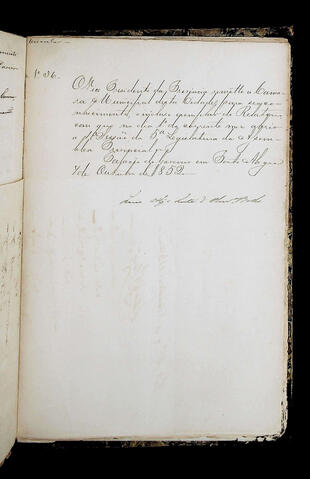 Circular
Nº 36.
O Vice Presidente da Provincia remette a Cama
ra Municipal desta Cidade, para seu co
nhecimento, o incluso exemplar do Relatorio
com que no dia 1º do corrente mez abrio
a Sessão da 5ª Legislatura da Assem
blea Provincial.
Palacio do Governo em Porto Alegre
7 de Outubro de 1852.
Luis